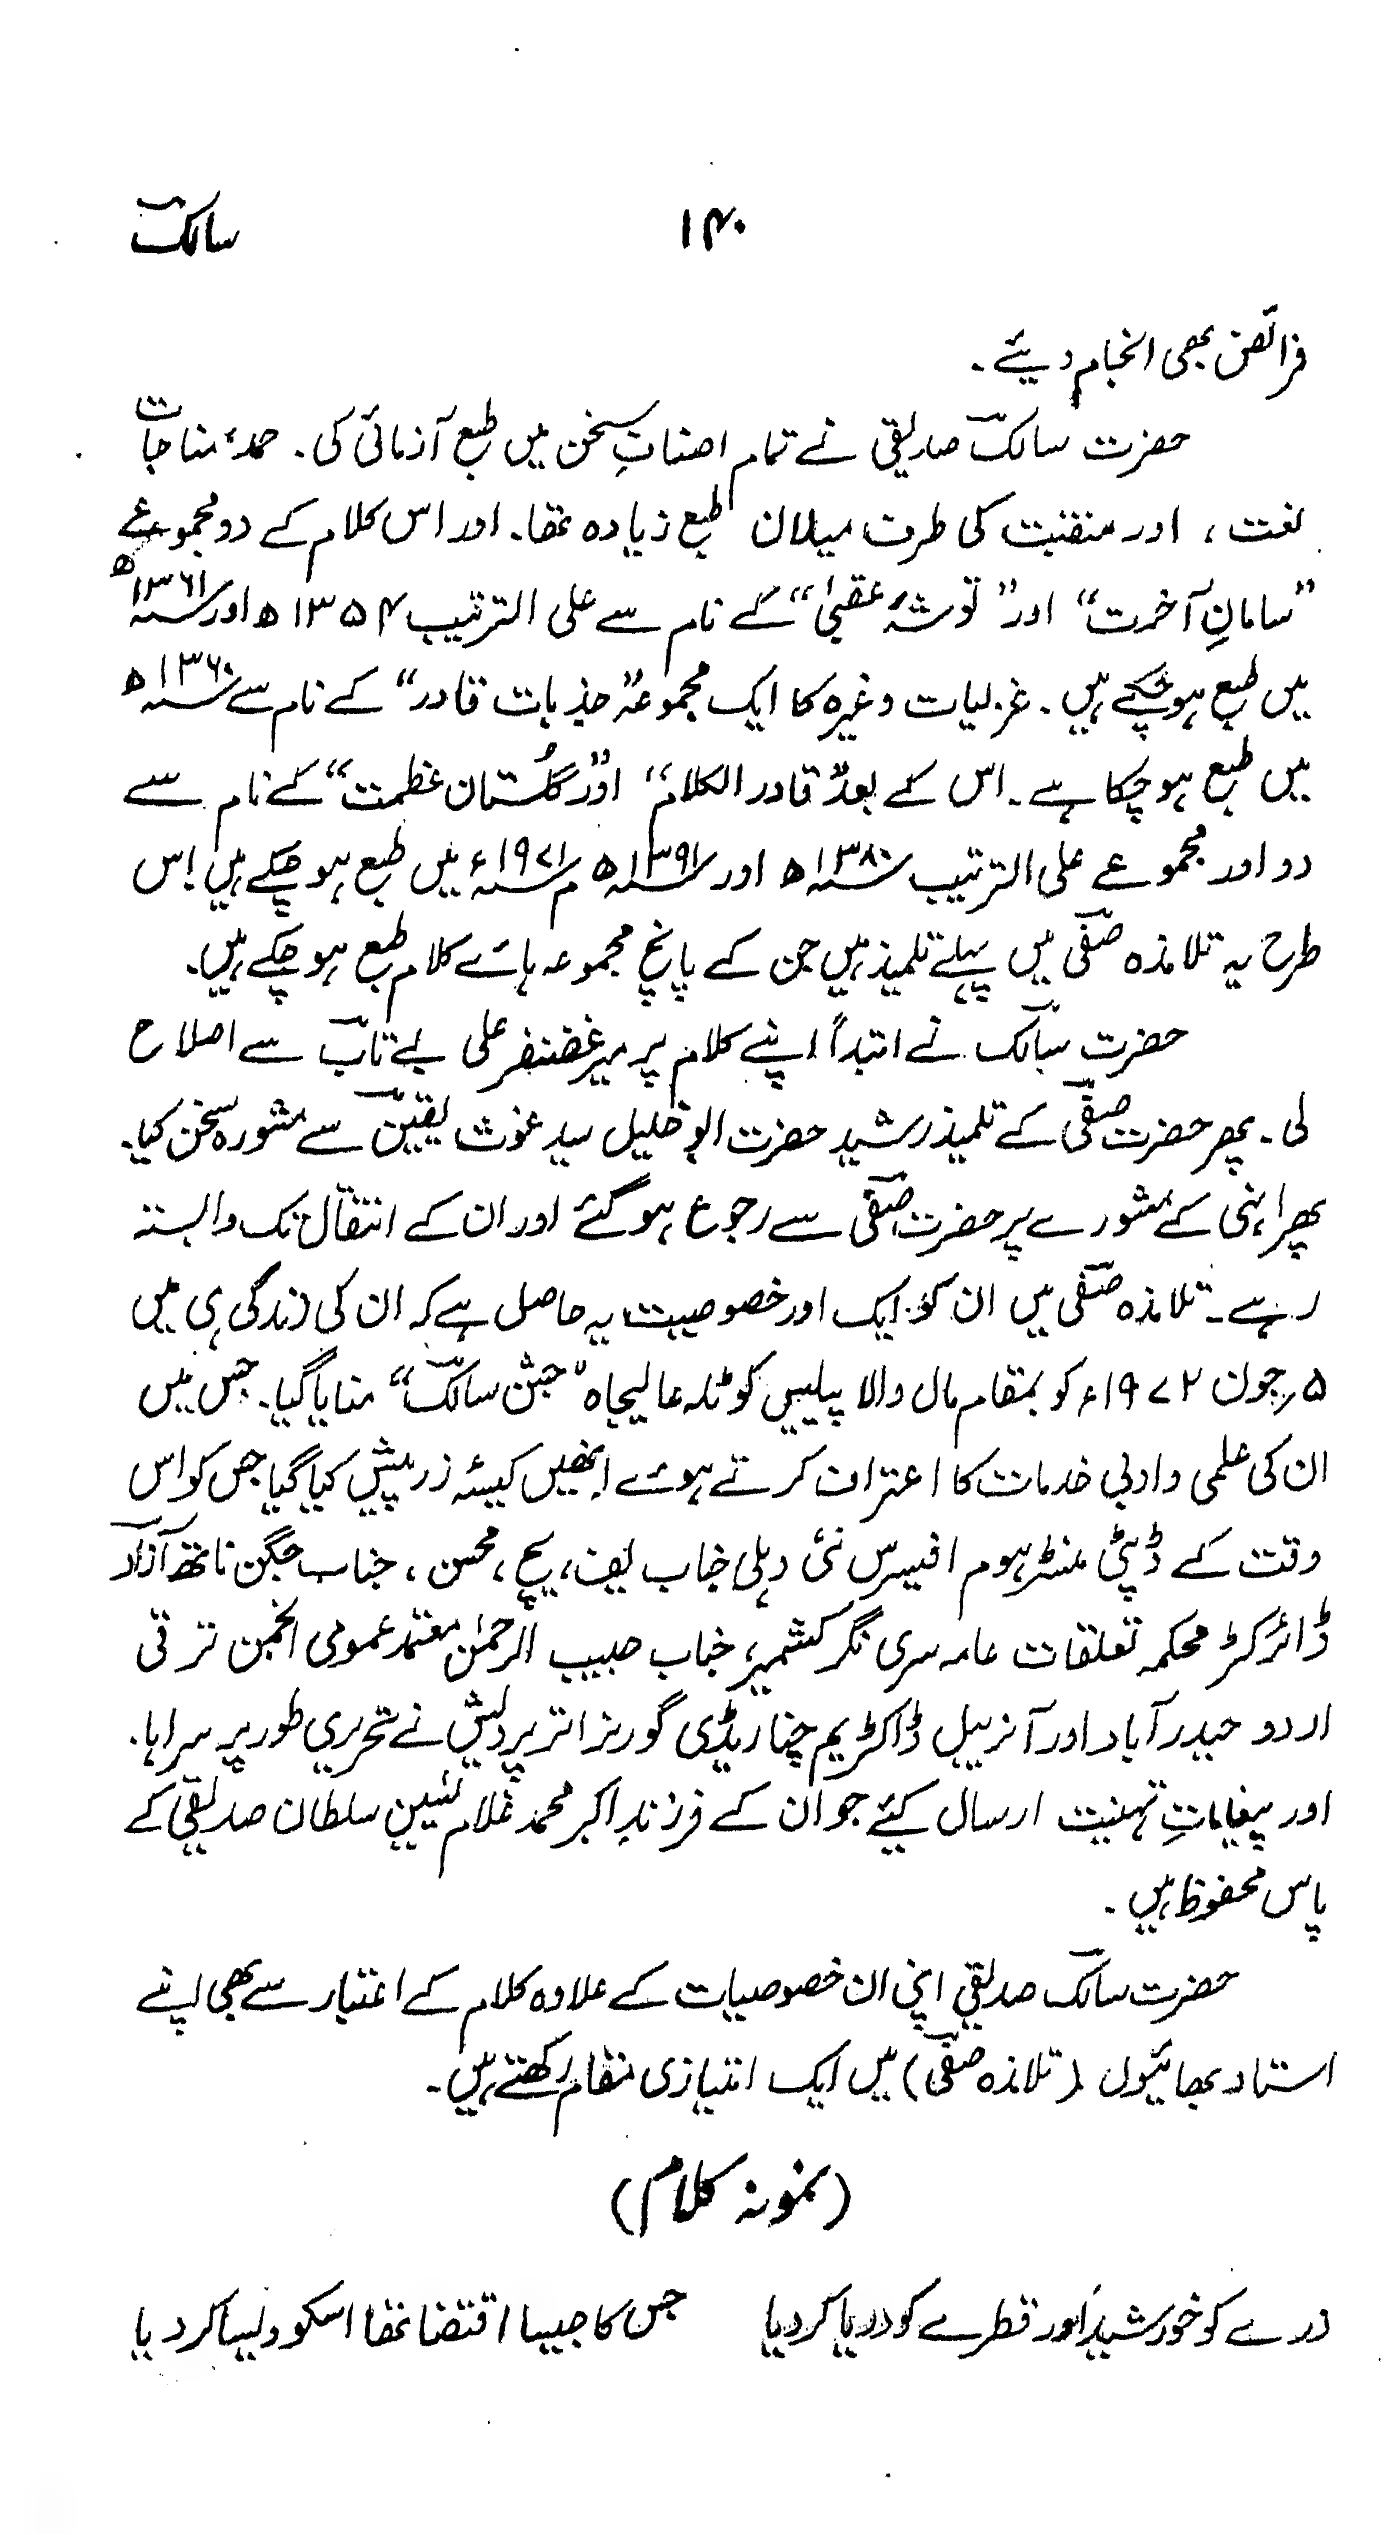 سالکؔ ۱۴۰
فرائض بھی انجام دیئے۔
حضرت سالکؔ صدیقی نے تمام اصنافِ سخن میں طبع آزمائی کی۔ حمد، مناجات
نعت ، اور منقبت کی طرف میلان طبع زیادہ تھا۔ اور اس کلام کے دو مجموعے
”سامانِ آخرت“ اور ”توشۂ عقبیٰ“ کے نام سے علی الترتیب ۱۳۵۴ھ اور سنہ ۱۳۶۱ھ
میں طبع ہو چکے ہیں۔ غزلیات وغیرہ کا ایک مجموعہ ”جذبات قادر“ کے نام سے سنہ ۱۳۶۰ھ
میں طبع ہو چکا ہے۔ اس کے بعد ”قادر الکلام“ اور ”گلستان عظمت“ کے نام سے
دو اور مجموعے علی الترتیب سنہ ۱۳۸۰ھ اور سنہ ۱۳۹۱ھ م سنہ ۱۹۷۱ء میں طبع ہو چکے ہیں اس
طرح یہ تلامذہ صفیؔ میں پہلے تلمیذ ہیں جن کے پانچ مجموعہ ہائے کلام طبع ہو چکے ہیں۔
حضرت سالکؔ نے ابتداً اپنے کلام پر میر غضنفر علی بے تابؔ سے اصلاح
لی۔ پھر حضرت صفیؔ کے تلمیذ رشید حضرت ابو خلیل سید غوث یقینؔ سے مشورہ سخن کیا۔
پھر انہی کے مشورے پر حضرت صفیؔ سے رجوع ہو گئے اور ان کے انتقال تک وابستہ
رہے۔ تلامذہ صفیؔ میں ان کو ایک اور خصوصیت یہ حاصل ہے کہ ان کی زندگی ہی میں
۵؍جون ۱۹۷۲ء کو بمقام مال والا پیلیس کوٹلہ عالیجاہ ”جشن سالکؔ“ منایا گیا۔ جس میں
ان کی علمی و ادبی خدمات کا اعتراف کرتے ہوئے انھیں کیسۂ زر پیش کیا گیا جس کو اس
وقت کے ڈپٹی منٹر ہوم افیرس نئی دہلی جناب یف، یچ، محسن ، جناب جگن ناتھ آزادؔ
ڈائرکٹر محکمہ تعلقات عامہ سری نگر کشمیر، جناب حبیب الرحمٰن معتمد عمومی انجمن ترقی
اردو حیدرآباد اور آنریبل ڈاکٹر یم چنا ریڈی گورنر اتر پردیش نے تحریری طور پر سراہا۔
اور پیغاماتِ تہنیت ارسال کیئے جو ان کے فرزندِ اکبر محمد غلام یٰسین سلطان صدیقی کے
پاس محفوظ ہیں۔
حضرت سالکؔ صدیقی اپنی ان خصوصیات کے علاوہ کلام کے اعتبار سے بھی اپنے
استاد بھائیوں (تلامذہ صفیؔ) میں ایک امتیازی مقام رکھتے ہیں۔
(نمونہ کلام)
ذرے کو خورشید اور قطرے کو دریا کر دیا جس کا جیسا اقتضا تھا اسکو ویسا کر دیا